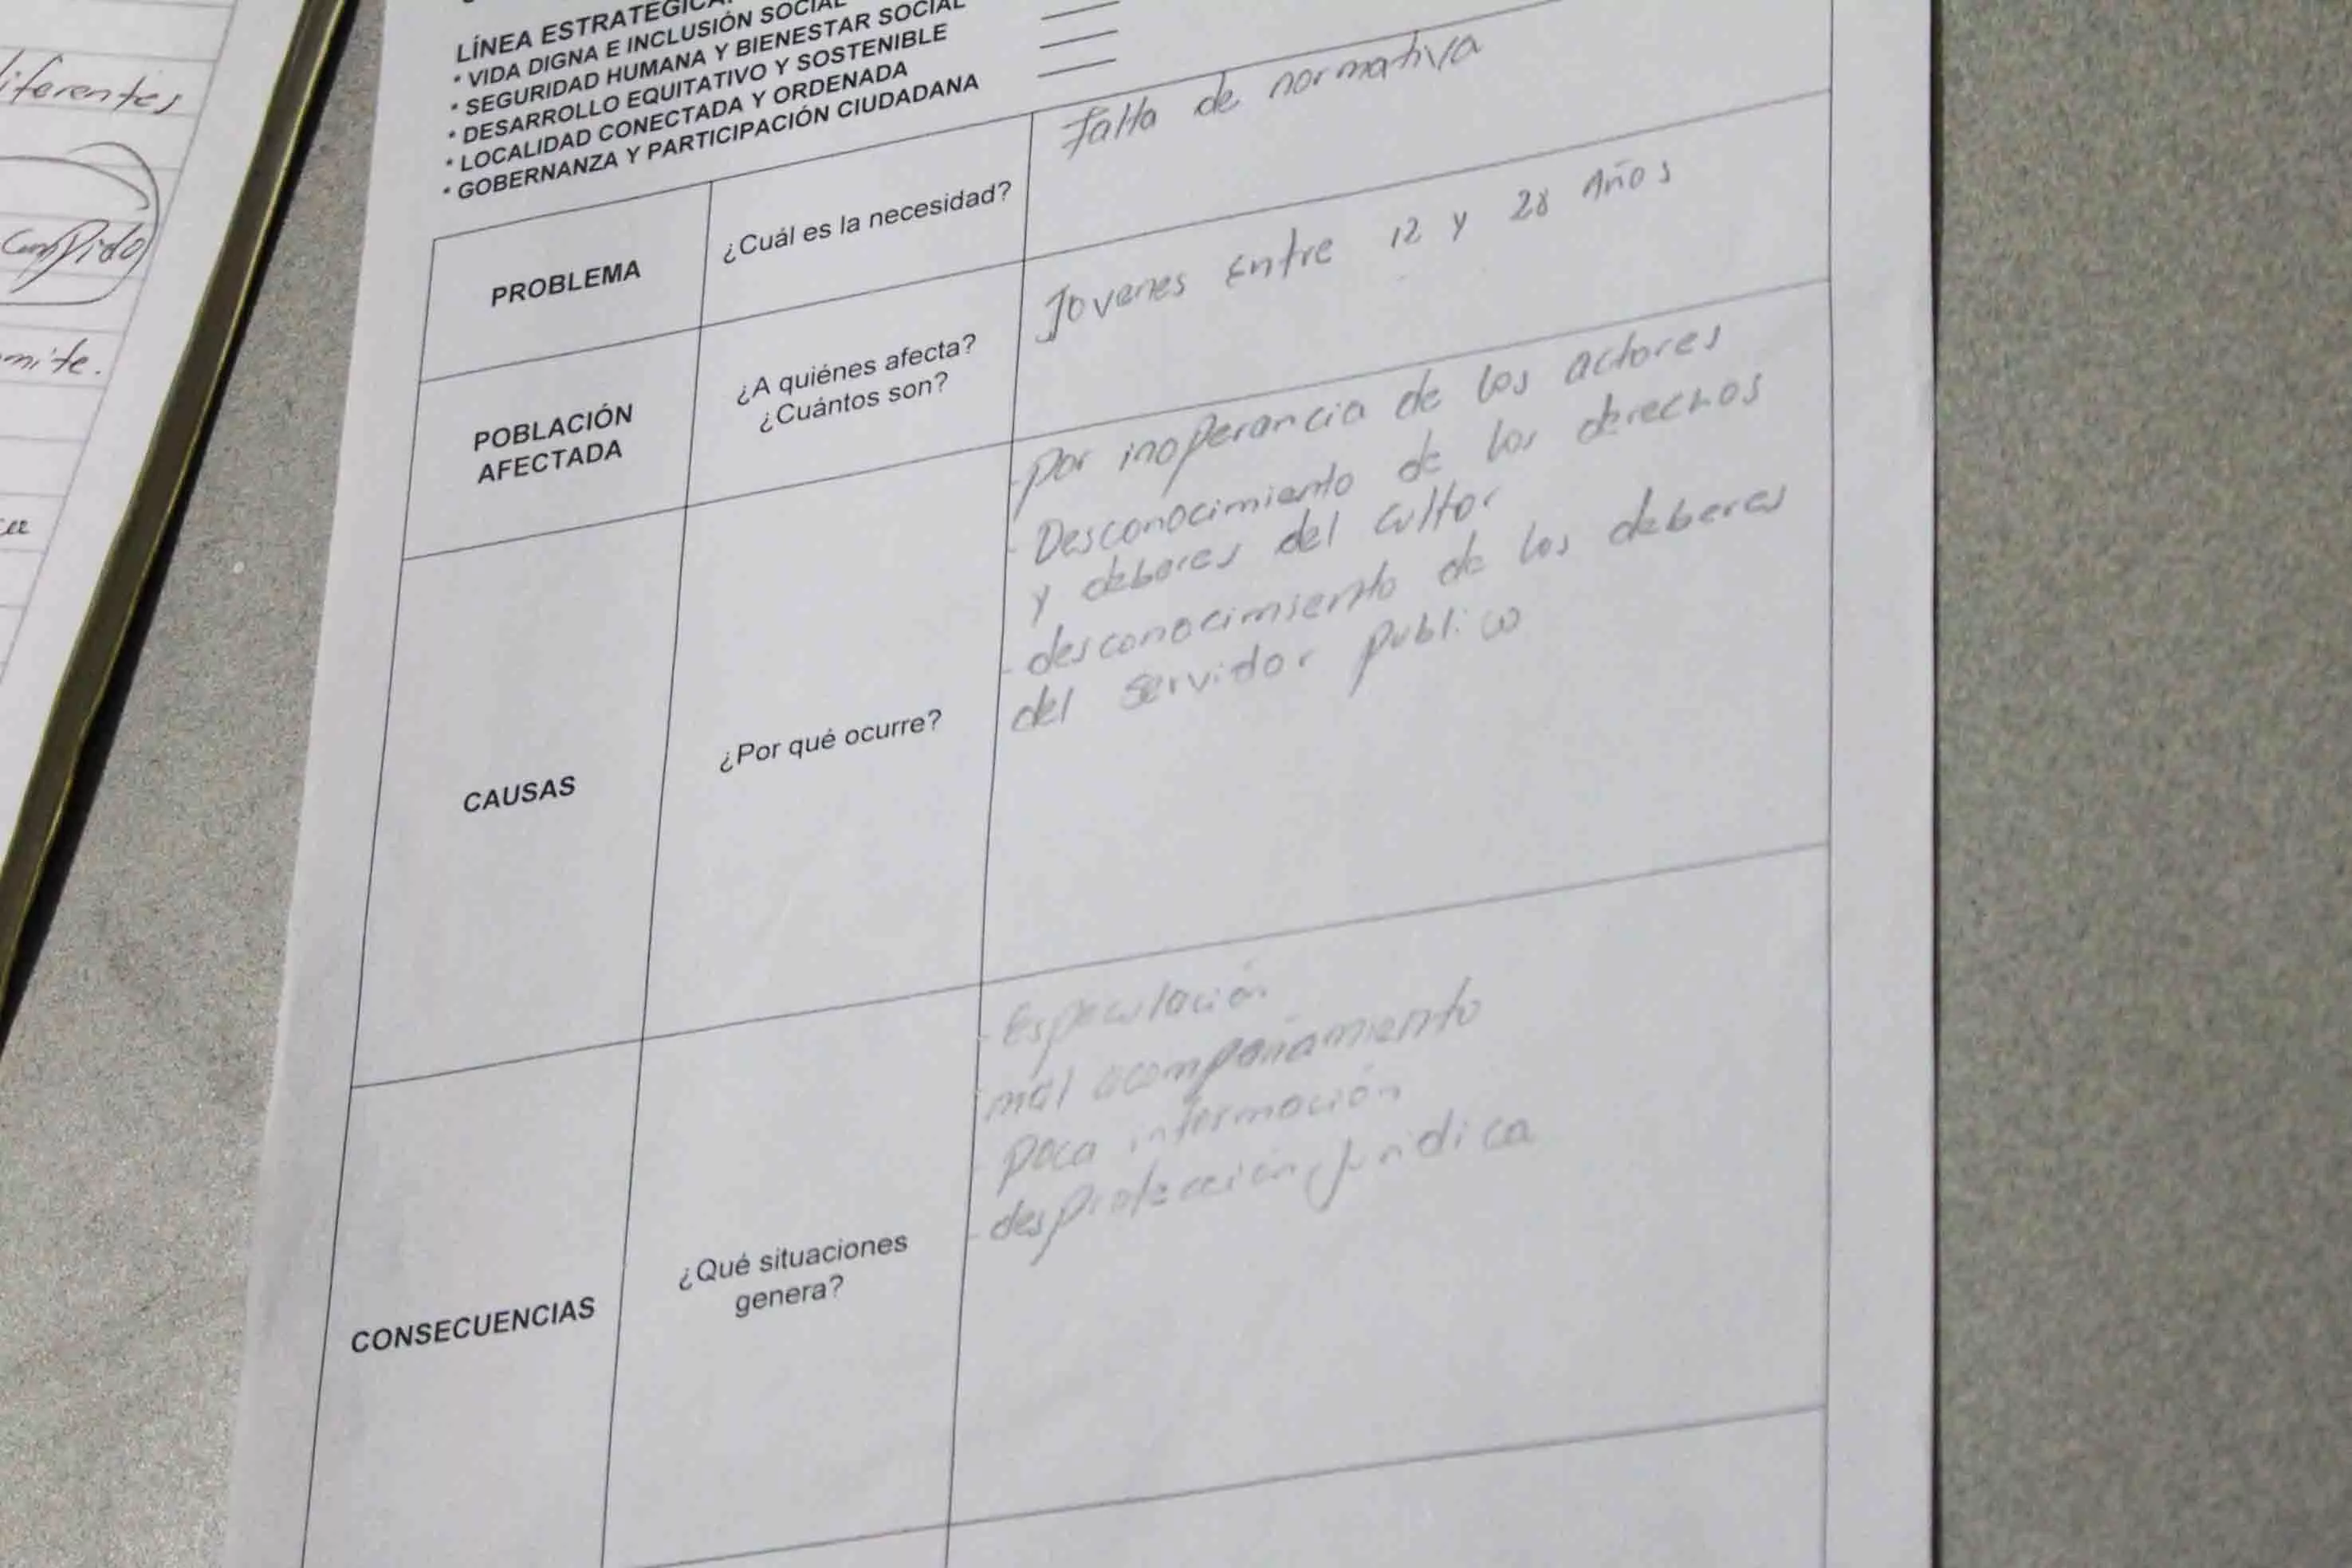 iferentes
Cumplido
mite.
LÍNEA ESTRATÉGICA
* VIDA DIGNA E INCLUSIÓN SOCIAL
* SEGURIDAD HUMANA Y BIENESTAR SOCIAL
* DESARROLLO EQUITATIVO Y SOSTENIBLE
* LOCALIDAD CONECTADA Y ORDENADA
* GOBERNANZA Y PARTICIPACIÓN CIUDADANA
PROBLEMA
¿Cuál es la necesidad?
Falta de normativa
POBLACIÓN
AFECTADA
¿A quiénes afecta?
¿Cuántos son?
Jovenes Entre 12 y 28 Años
CAUSAS
¿Por qué ocurre?
- por inoperancia de los actores
- Desconocimiento de los derechos
y deberes del cultor
- desconocimiento de los deberes
del servidor publico
CONSECUENCIAS
¿Qué situaciones
genera?
- Especulación
- mal acompañamiento
- poca información
- desprotección juridica